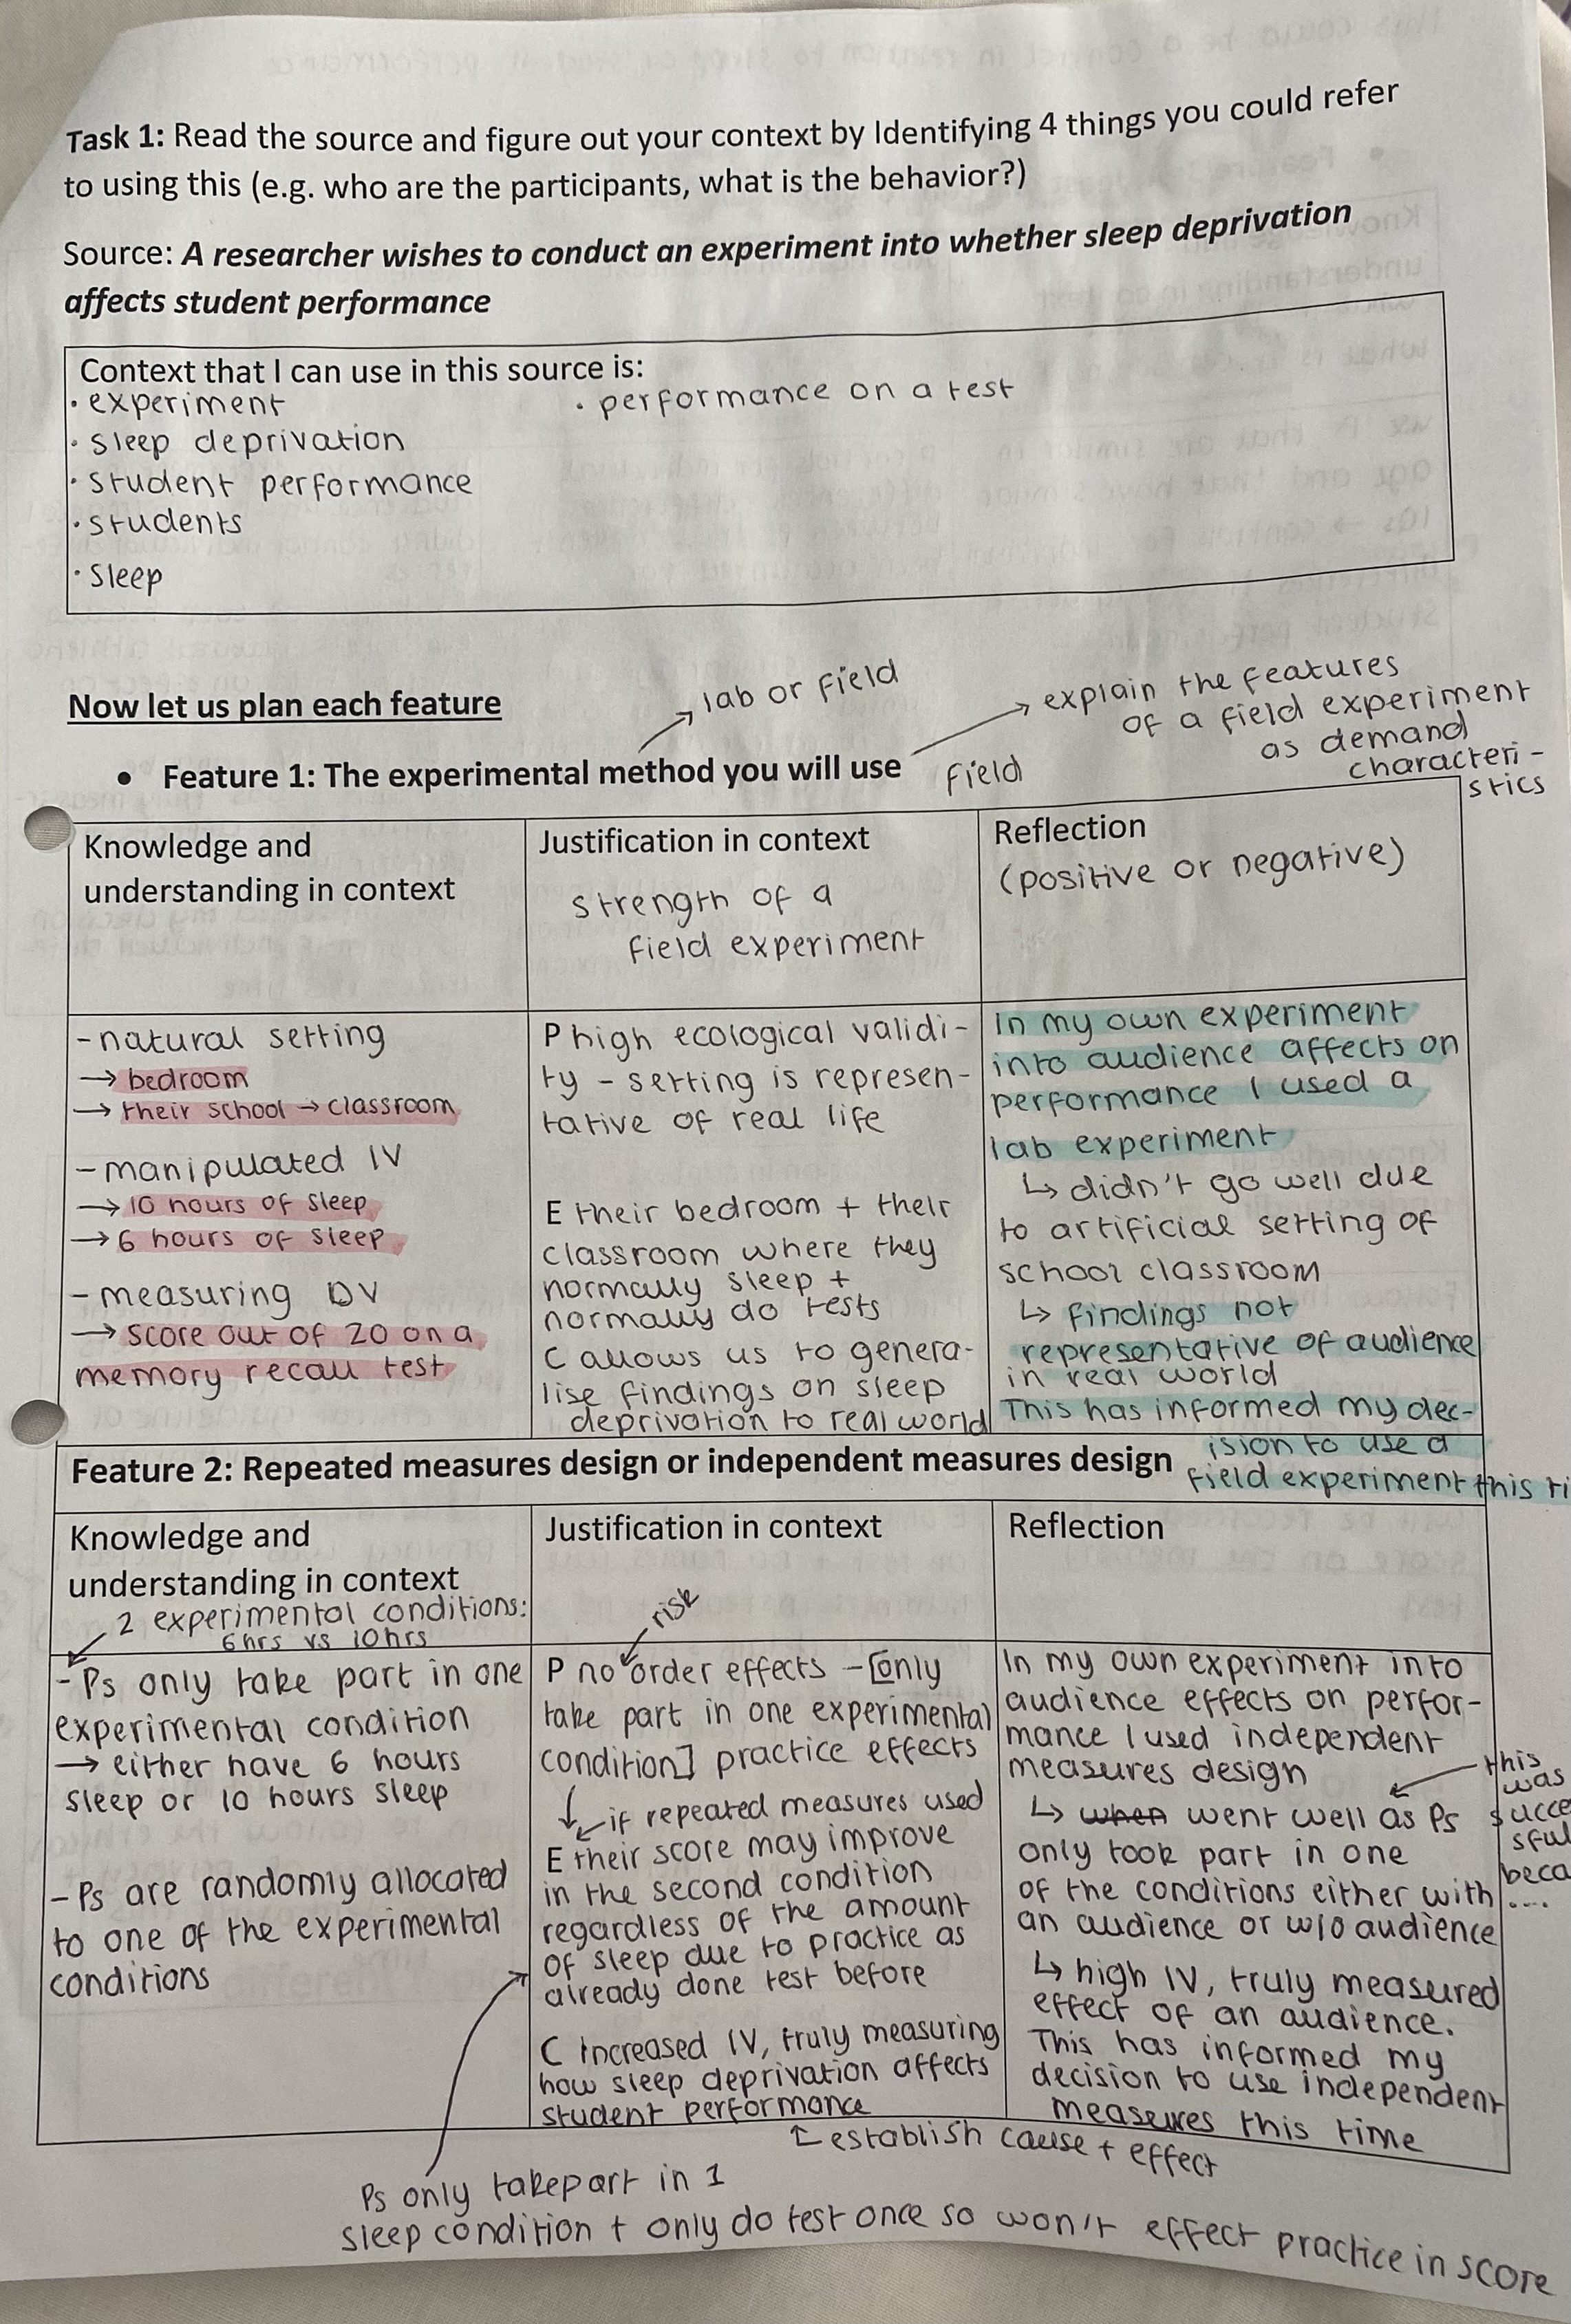 Task 1: Read the source and figure out your context by Identifying 4 things you could refer
to using this (e.g. who are the participants, what is the behavior?)
Source: A researcher wishes to conduct an experiment into whether sleep deprivation
affects student performance
Context that I can use in this source is:
· experiment
· performance on a test
· sleep deprivation
· student performance
· students
· sleep
lab or field
Now let us plan each feature
explain the features
of a field experiment
as demand
characteri-
stics
• Feature 1: The experimental method you will use
field
Knowledge and
understanding in context
Justification in context
strength of a
field experiment
Reflection
(positive or negative)
- natural setting
→ bedroom
→ their school → classroom
- manipulated IV
→ 10 hours of sleep
→ 6 hours of sleep
- measuring DV
→ score out of 20 on a
memory recall test
P high ecological validi-
ty - setting is represen-
tative of real life
E their bedroom + their
classroom where they
normally sleep +
normally do tests
C allows us to genera-
lise findings on sleep
deprivation to real world
In my own experiment
into audience affects on
performance I used a
lab experiment
↳ didn't go well due
to artificial setting of
school classroom
↳ findings not
representative of audience
in real world
This has informed my dec-
ision to use a
field experiment this ti
Feature 2: Repeated measures design or independent measures design
Knowledge and
understanding in context
2 experimental conditions:
6hrs vs 10hrs
Justification in context
risk
Reflection
- Ps only take part in one
experimental condition
→ either have 6 hours
sleep or 10 hours sleep
- Ps are randomly allocated
to one of the experimental
conditions
P no order effects - [only
take part in one experimental
condition] practice effects
↓ if repeated measures used
E their score may improve
in the second condition
regardless of the amount
of sleep due to practice as
already done test before
C increased IV, truly measuring
how sleep deprivation affects
student performance
establish cause + effect
In my own experiment into
audience effects on perfor-
mance I used independent
measures design
↳ when went well as Ps
only took part in one
of the conditions either with
an audience or w/o audience
↳ high IV, truly measured
effect of an audience.
This has informed my
decision to use independent
measures this time
this
was
succe
sful
beca
....
Ps only takepart in 1
sleep condition + only do test once so won't effect practice in score